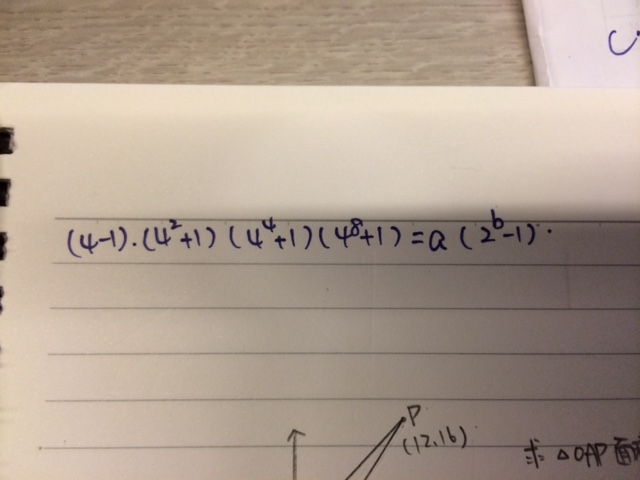 (4-1).(4²+1)(4⁴+1)(4⁸+1)=a(2ᵇ-1).
P
(12,16)
求 △OAP 面